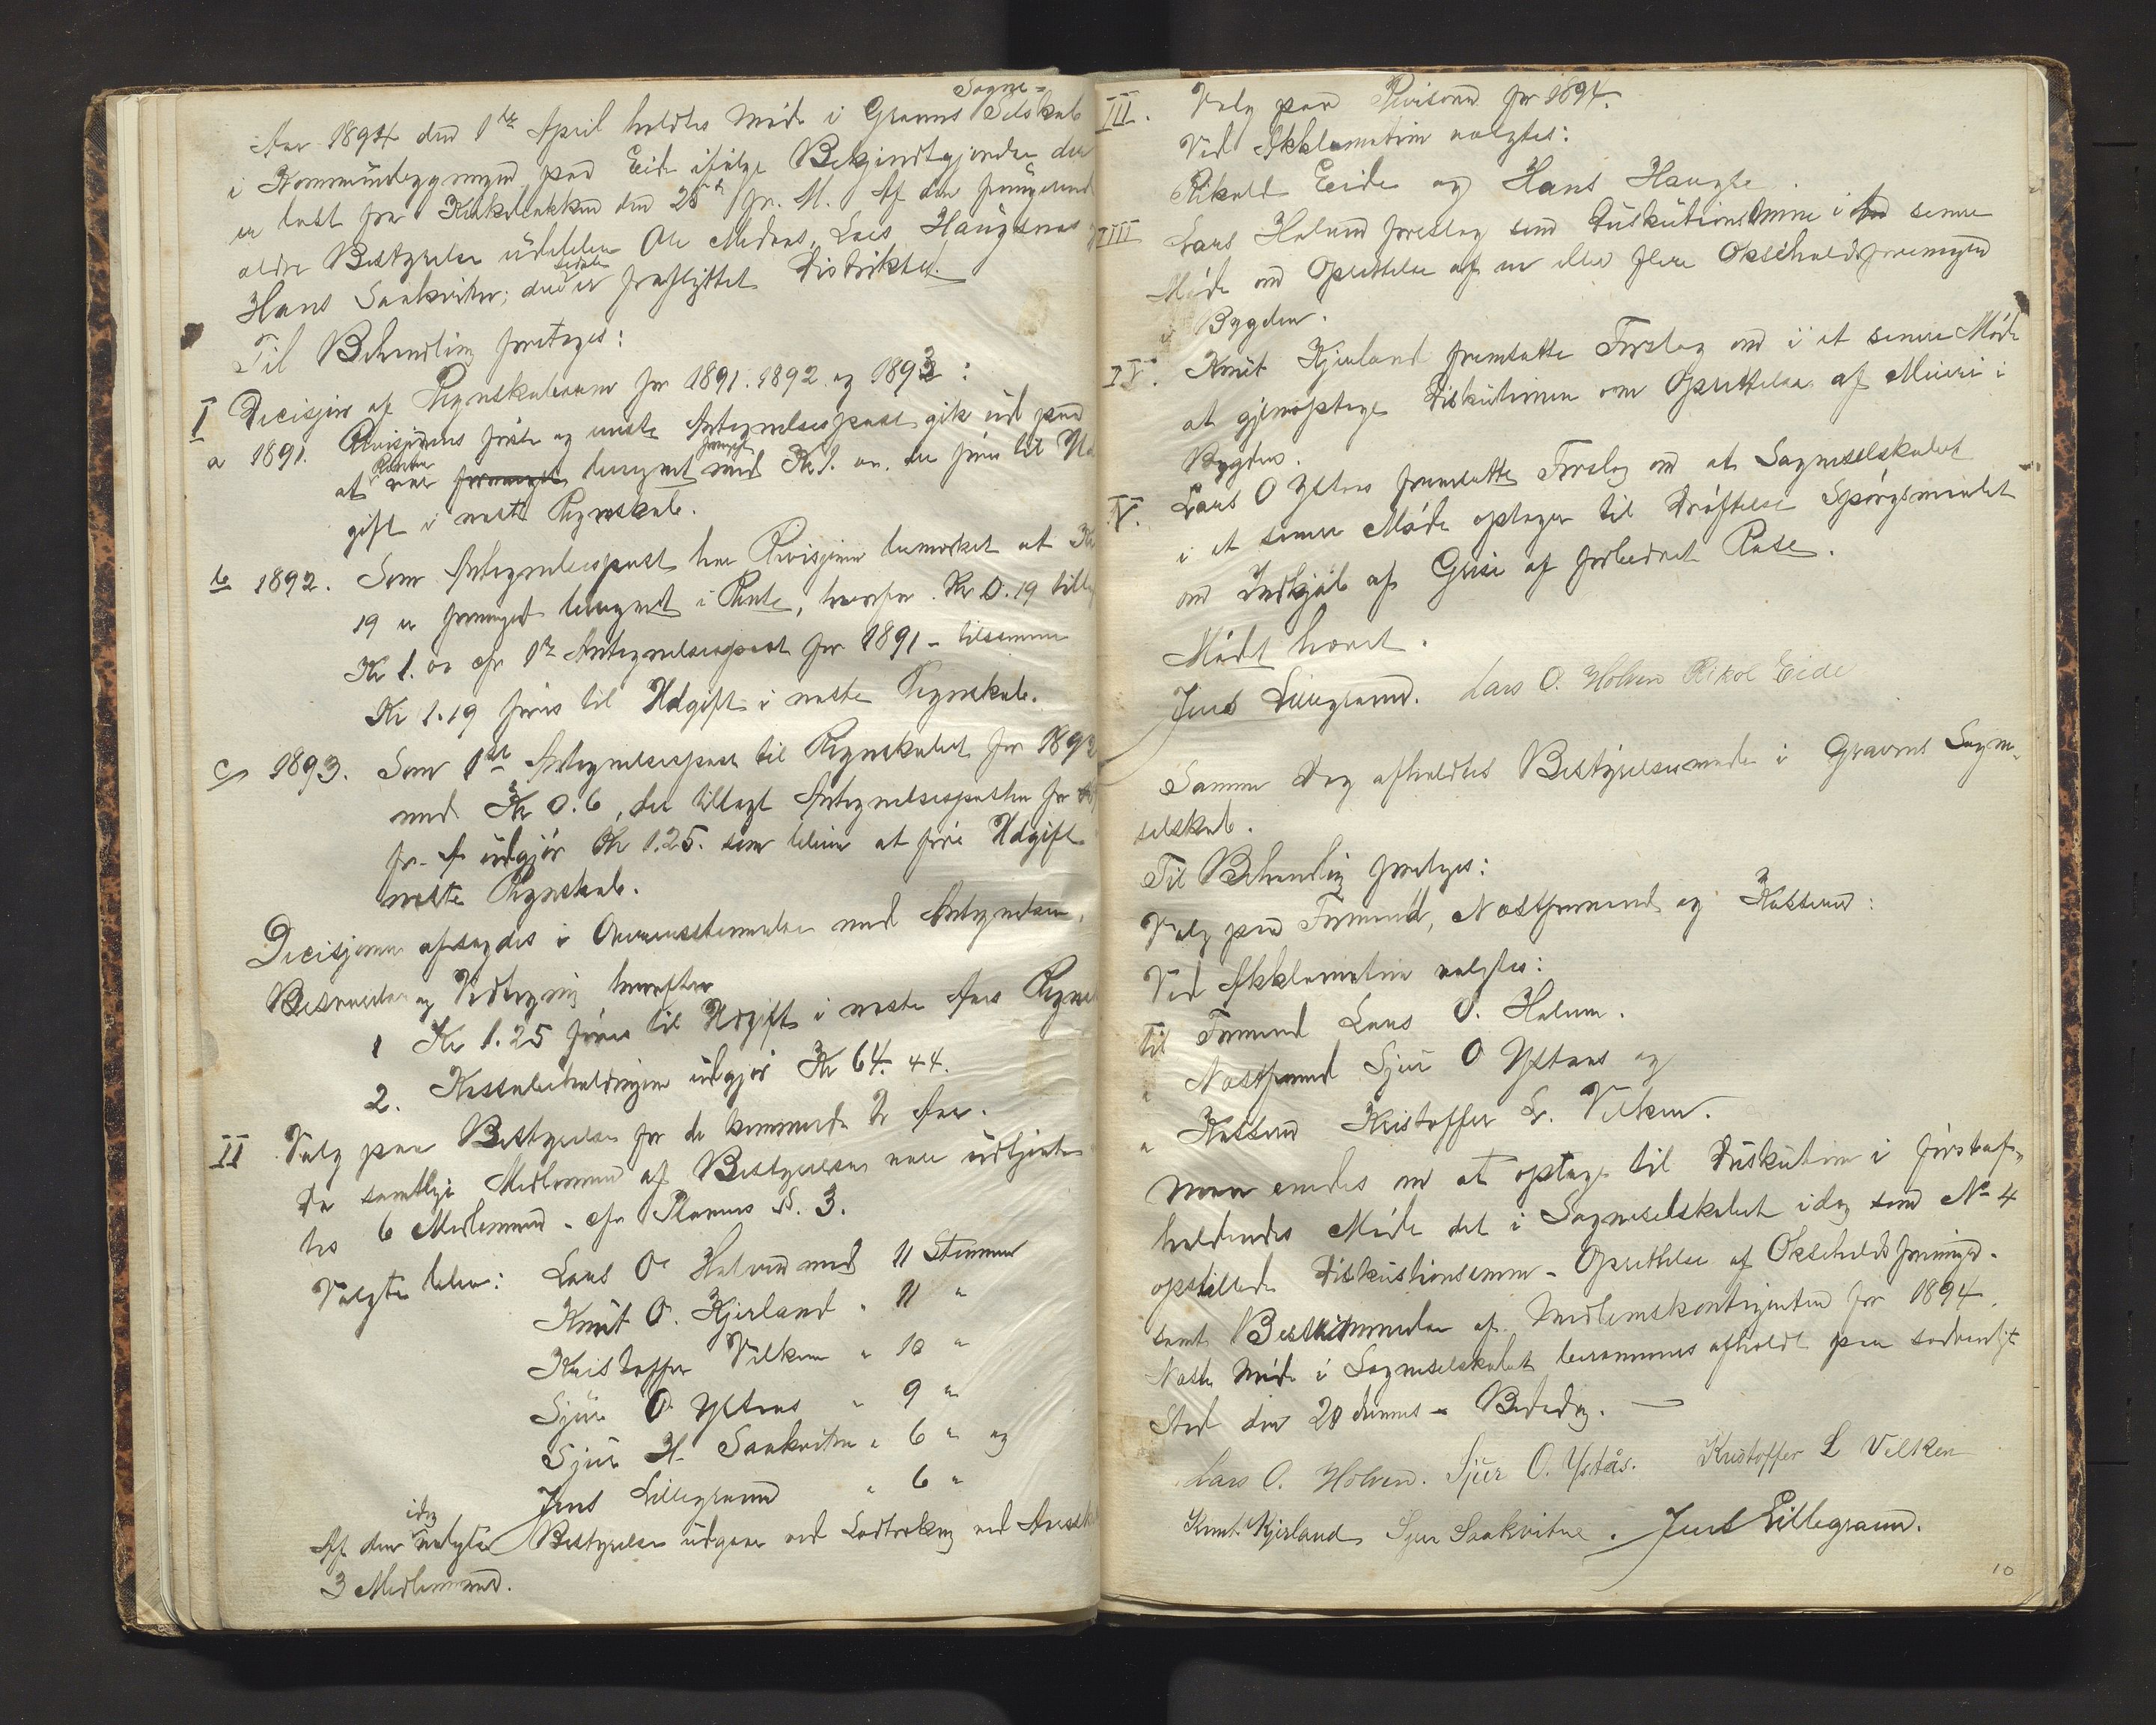 Sogne-
Aar 1894 den 1ste April holdtes Møde i Gravens Selskab
i Kommunebygningen paa Eide ifølge Bekjendtgjørelse der
er læst fra Kirkebakken den 25de fr. M. Af den fungerende
ældre Bestyrelse udebleve Ole Medaas, Lars Haugsnæs
Hans Saakvitne; den sidste er fraflyttet Distriktet.
Til Behandling foretoges:
I Decisjon af Regnskaberne for 1891. 1892 og 1893:
a 1891. Revisjonens første og eneste Antegnelsespost gik ud paa
at Renten var beregnet formeget med Kr. 1. ør. der føres til Ud
gift i næste Regnskab.
b 1892. Som Antegnelsespost har Revisjonen bemærket at Kr
19 er formeget beregnet i Rente, hvorfor Kr 0.19 tillagt
Kr 1. ør cfr 1ste Antegnelsespost for 1891 - tilsammen
Kr 1.19 føres til Udgift i næste Regnskab.
c 1893. Som 1ste Antegnelsespost til Regnskabet for 1893
med Kr 0.6, der tillagt Antegnelsesposten for
fr. A. udgjør Kr 1.25. som bliver at føre Udgift
næste Regnskab.
Decisjonen afsagdes i Overensstemmelse med Antegnelsen,
Besvarelse og Vedtegning hvorefter
1 Kr 1.25 føres til Udgift i næste Aars Regns
2. Kassabeholdningen udgjør Kr 64.44.
II Valg paa Bestyrelse for de kommende 2 Aar.
Da samtlige Medlemmer af Bestyrelsen var udtjent
tes 6 Medlemmer - cfr Planens §. 3.
Valgte blev: Lars O. Holven med 11 Stemmer
Knut O. Kjerland " 11 "
Kristoffer Velken " 10 "
Sjur O Ystaas " 9 "
Sjur H. Saakvitne " 6 " og
Jens Lillegraven " 6 "
Af den idag valgte Bestyrelse udgaar ved Lodtrækning ved Aarsskiftet
3 Medlemmer.
III. Valg paa Revisorer for 1894.
Ved Akklamation valgtes:
Rikold Eide og Hans Haugse.
IIII Lars Holven foreslog som Diskutionsemne i senere
Møde om Oprettelse af en eller flere Okseholdsforeninger
i Bygden.
IV. Knut Kjerland fremsatte Forslag om i et senere Møde
at gjenoptage Diskutionen om Oprettelse af Meieri i
Bygden.
V. Lars O Ystaas fremsatte Forslag om at Sogneselskabet
i et senere Møde optager til Drøftelse Spørgsmaalet
om Indkjøb af Grise af forbedret Rase.
Mødet hævet.
Jens Lillegraven. Lars O. Holven Rikol Eide
Samme Dag afholdtes Bestyrelsesmøde i Gravens Sogne-
selskab.
Til Behandling foretoges:
Valg paa Formand, Næstformand og Kasserer:
Ved Akklamation valgtes:
til Formand Lars O. Holven.
" Næstformand Sjur O Ystaas og
" Kasserer Kristoffer L. Velken.
Man enedes om at optage til Diskution i førstaf-
holdendes Møde det i Sogneselskabet idag som No 4
opstillede Diskustionsemne - Oprettelse af Okseholdsforeninger -
samt Bestemmelse af Medlemskontigenten for 1894.
Næste Møde i Sogneselskabet berammes afholdt paa sædvanligt
Sted den 20 dennes - Bededag. -
Lars O. Holven. Sjur O. Ystås. Kristoffer L Velken
Knut Kjerland Sjur Saakvitne. Jens Lillegraven.
10